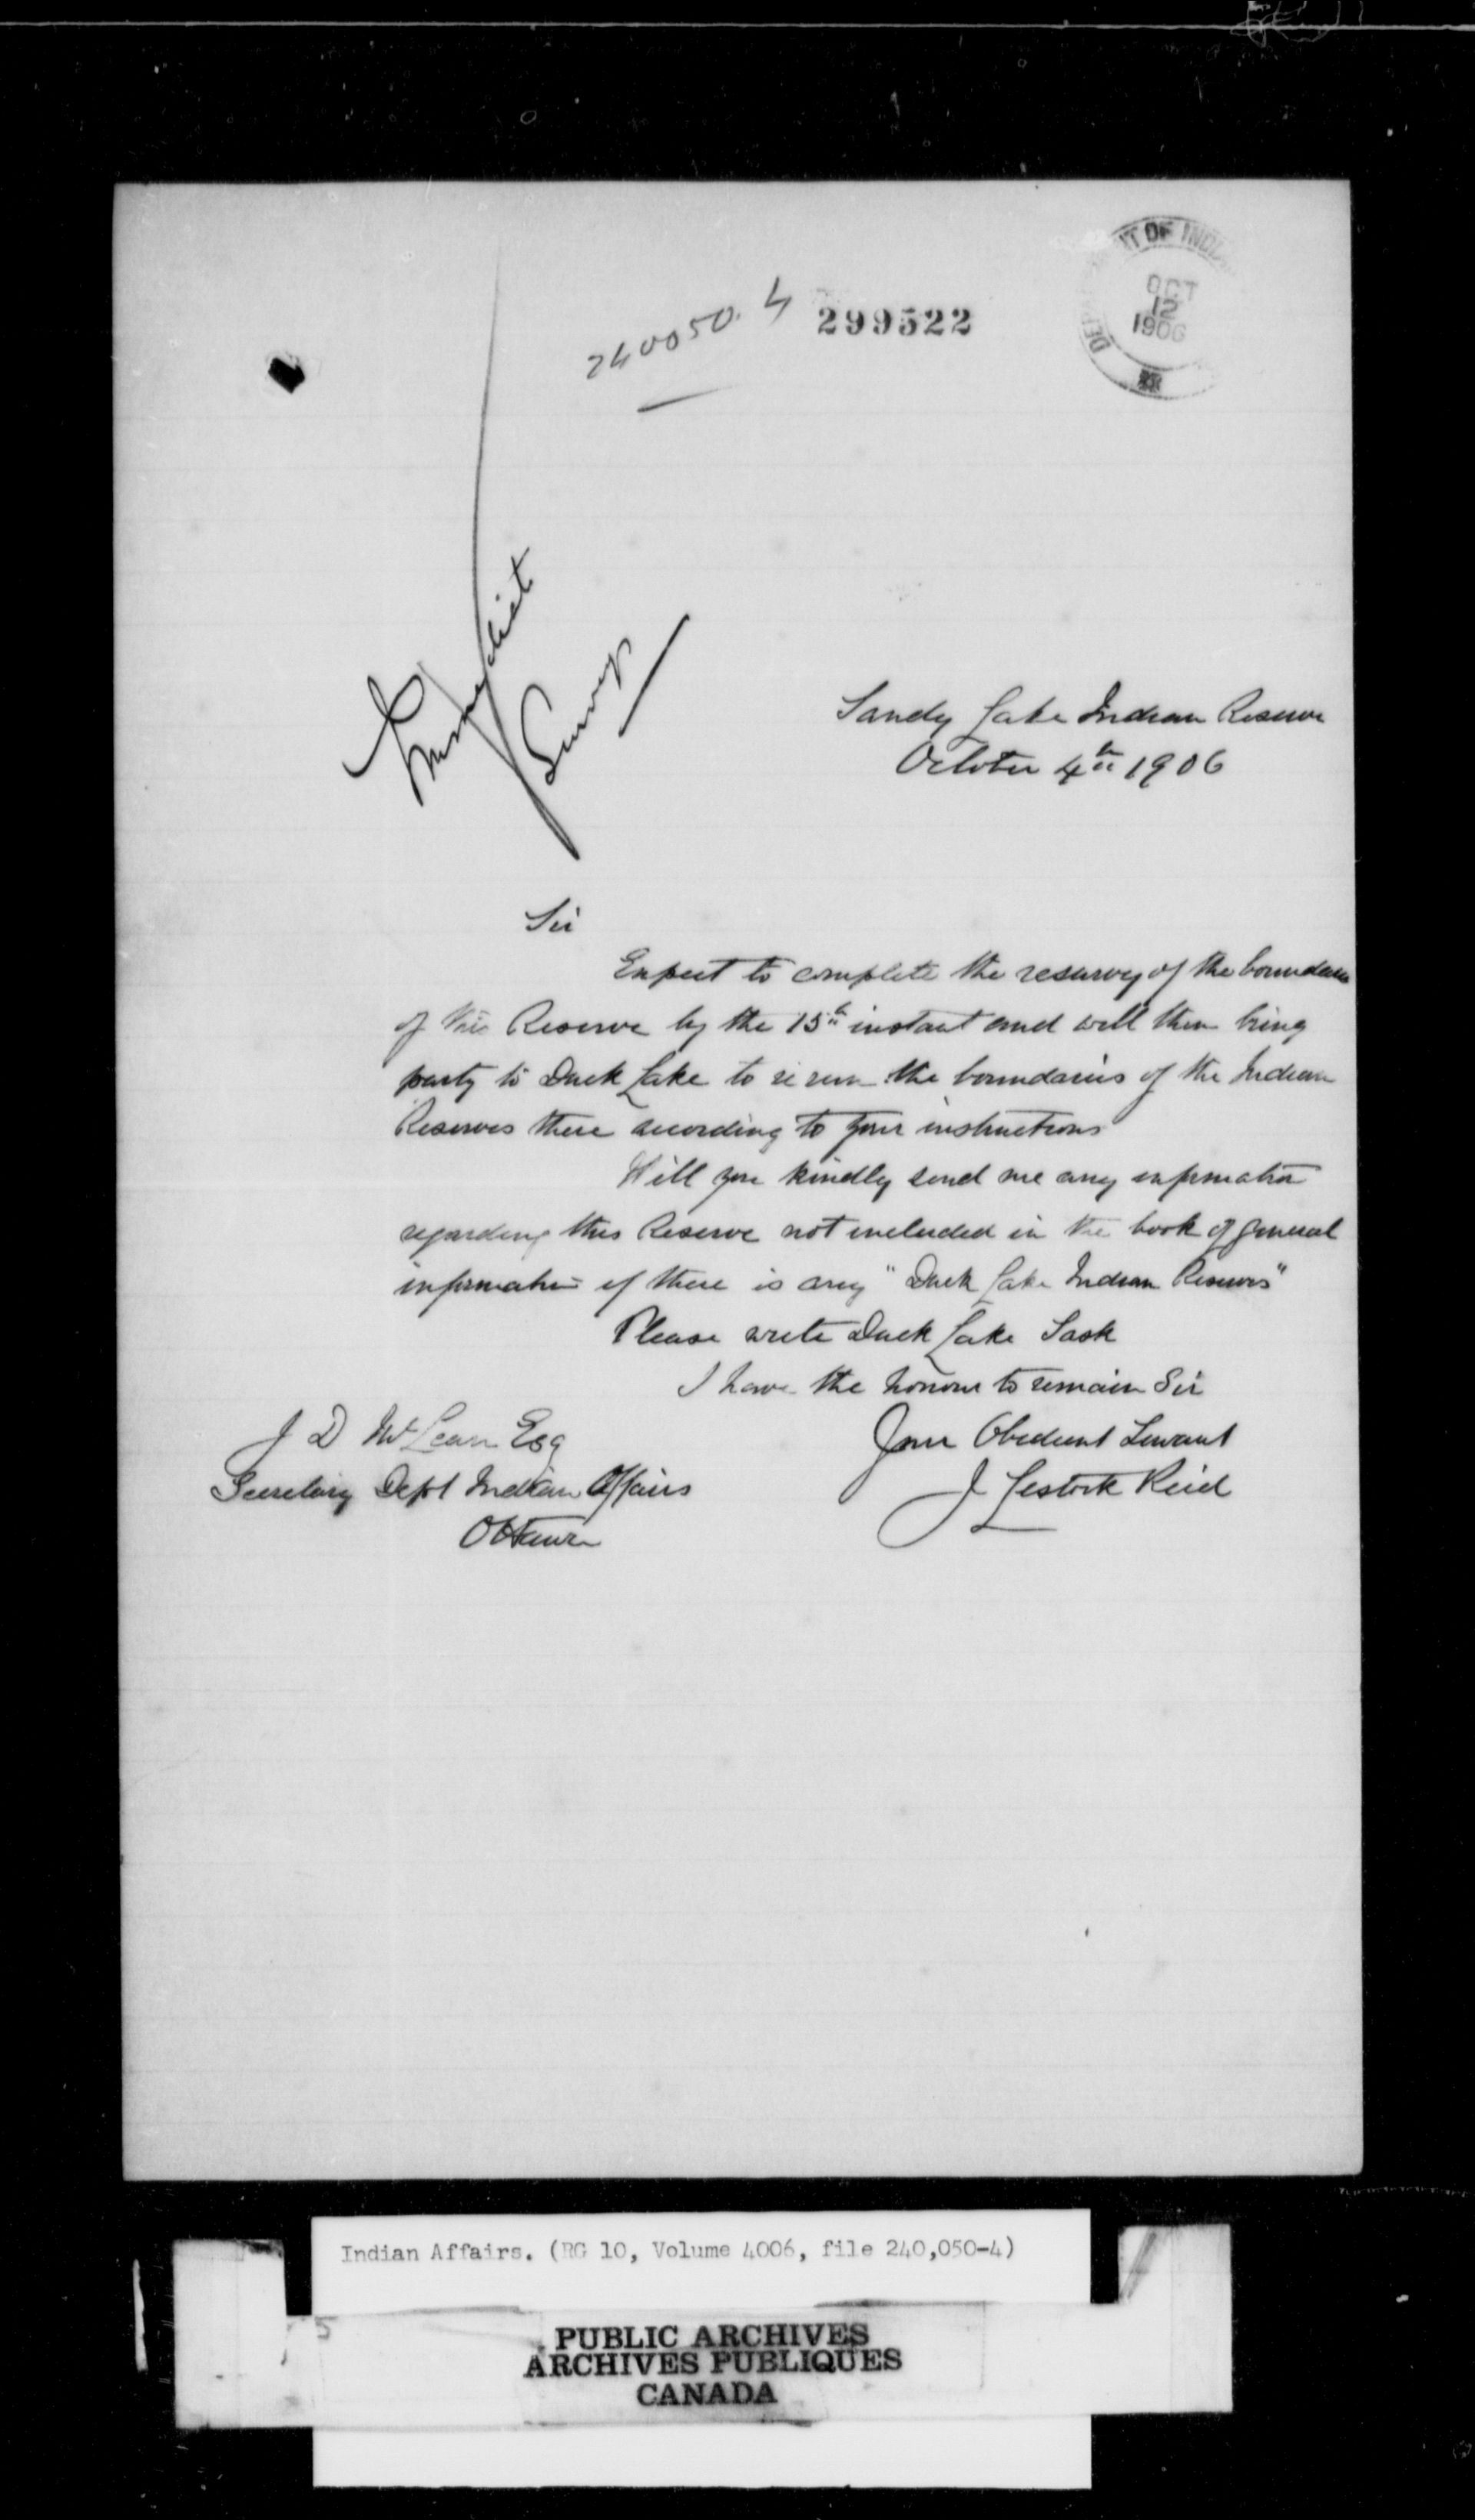 240050.4
299522
OCT
12
1906
Immediat
Survey
Sandy Lake Indian Reserve
October 4th 1906
Sir
Expect to complete the resurvey of the boundaries
of this Reserve by the 15th instant and will then bring
party to Duck Lake to re run the boundaries of the Indian
Reserves there according to your instructions
Will you kindly send me any information
regarding this Reserve not included in the book of general
information if there is any "Duck Lake Indian Reserves"
Please write Duck Lake Sask
I have the honour to remain Sir
Your Obedient Servant
J Lestock Reid
J D McLean Esq
Secretary Dept Indian Affairs
Ottawa
Indian Affairs. (RG 10, Volume 4006, file 240,050-4)
PUBLIC ARCHIVES
ARCHIVES PUBLIQUES
CANADA